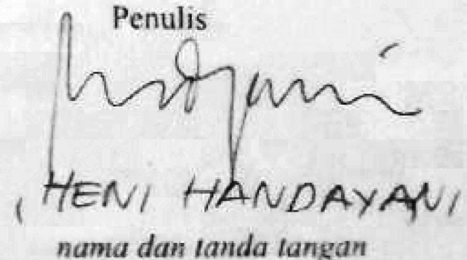 Penulis
(HENI HANDAYANI
nama dan tanda tangan